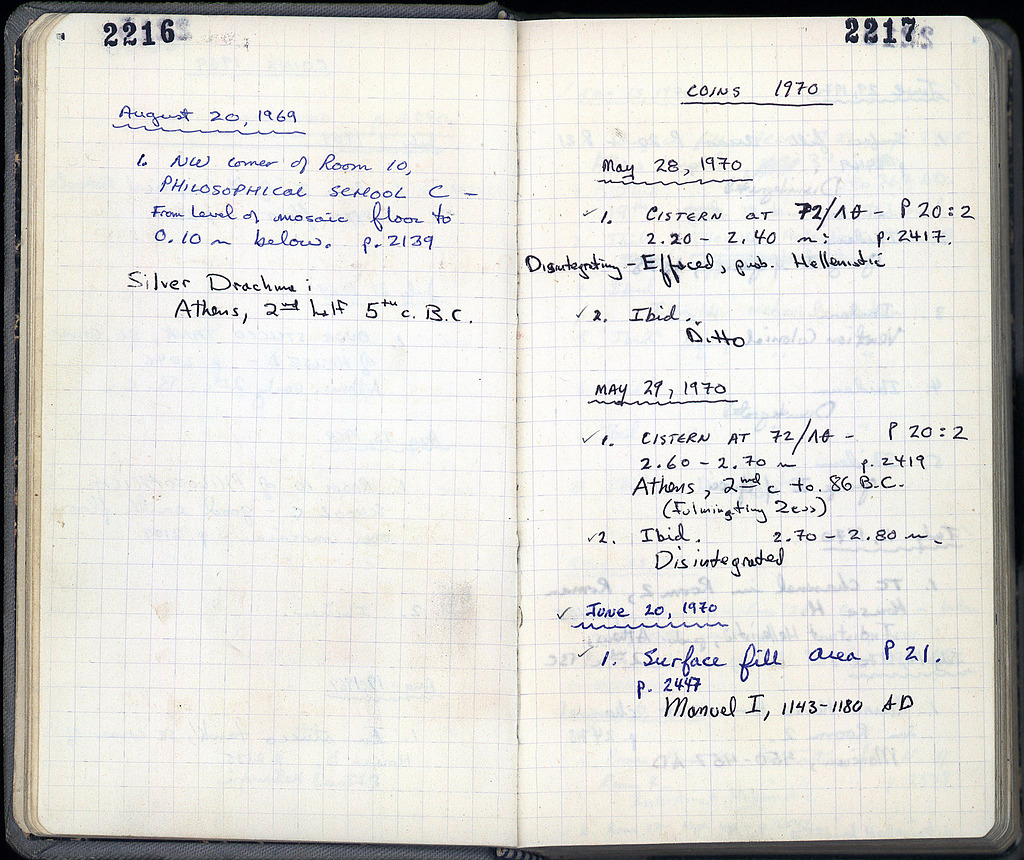 2216
August 20, 1969
1. NW corner of Room 10,
PHILOSOPHICAL SCHOOL C –
From level of mosaic floor to
0.10 m below. p. 2139
Silver Drachme:
Athens, 2nd half 5th c. B.C.
2217
COINS 1970
May 28, 1970
✓1. CISTERN AT 72/ΛΘ – P 20:2
2.20 – 2.40 m: p. 2417.
Disintegrating – Effaced, prob. Hellenistic
✓2. Ibid.
Ditto
MAY 29, 1970
✓1. CISTERN AT 72/ΛΘ – P 20:2
2.60 – 2.70 m p. 2419
Athens, 2nd c to. 86 B.C.
(Fulminating Zeus)
✓2. Ibid. 2.70 – 2.80 m.
Disintegrated
✓ June 20, 1970
✓1. Surface fill area P 21.
p. 2447
Manuel I, 1143–1180 AD